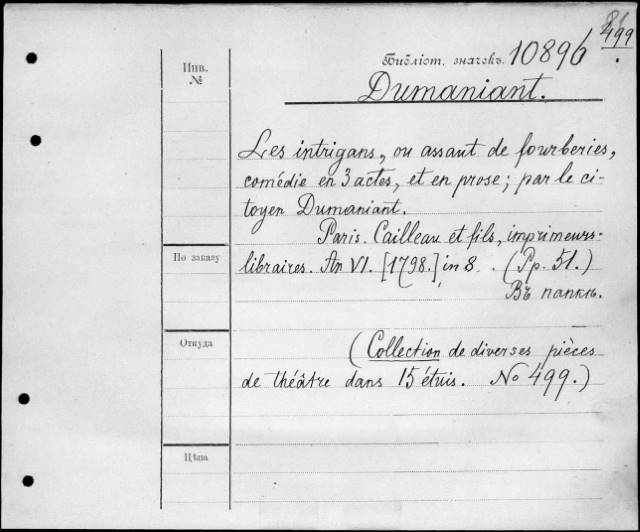 499
Библіот. значекъ. 10896
Инв.
№
Dumaniant.
Les intrigans, ou assaut de fourberies,
comédie en 3 actes, et en prose; par le ci-
toyen Dumaniant.
Paris. Cailleau et fils, imprimeurs-
По заказу
libraires. An VI. [1798.] in 8. (Pp. 51.)
Въ папкѣ.
Откуда
(Collection de diverses pièces
de théâtre dans 15 étuis. No 499.)
Цѣна